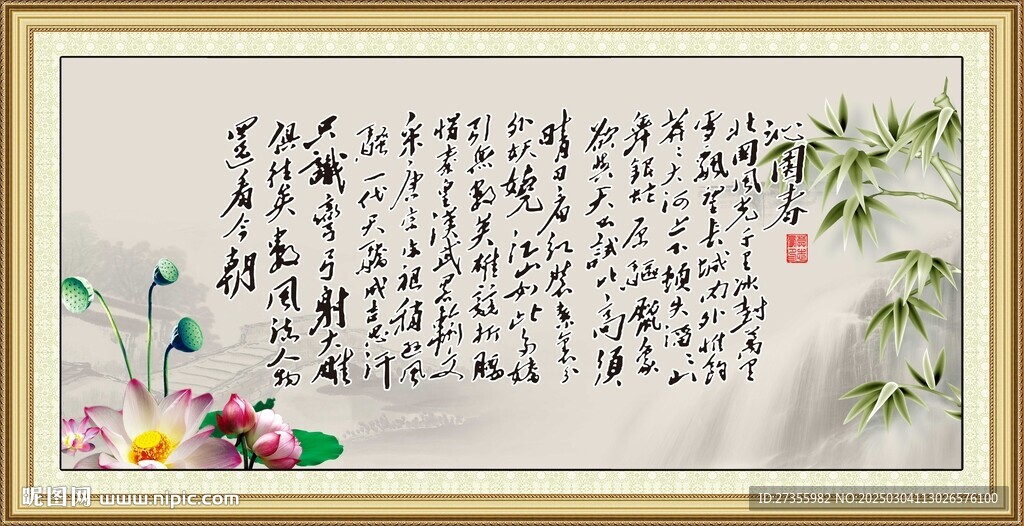 沁園春
北國风光千里冰封萬里
雪飘望长城内外惟餘
莽々大河上下頓失滔々山
舞銀蛇原驅臘象
欲與天公試比高須
晴日看红装素裹分
外妖娆江山如此多嬌
引無数英雄競折腰
惜秦皇漢武略输文
采唐宗宋祖稍逊风
騷一代天骄成吉思汗
只識彎弓射大雕
俱往矣数風流人物
還看今朝
昵图网 www.nipic.com
ID:27355982 NO:20250304113026576100